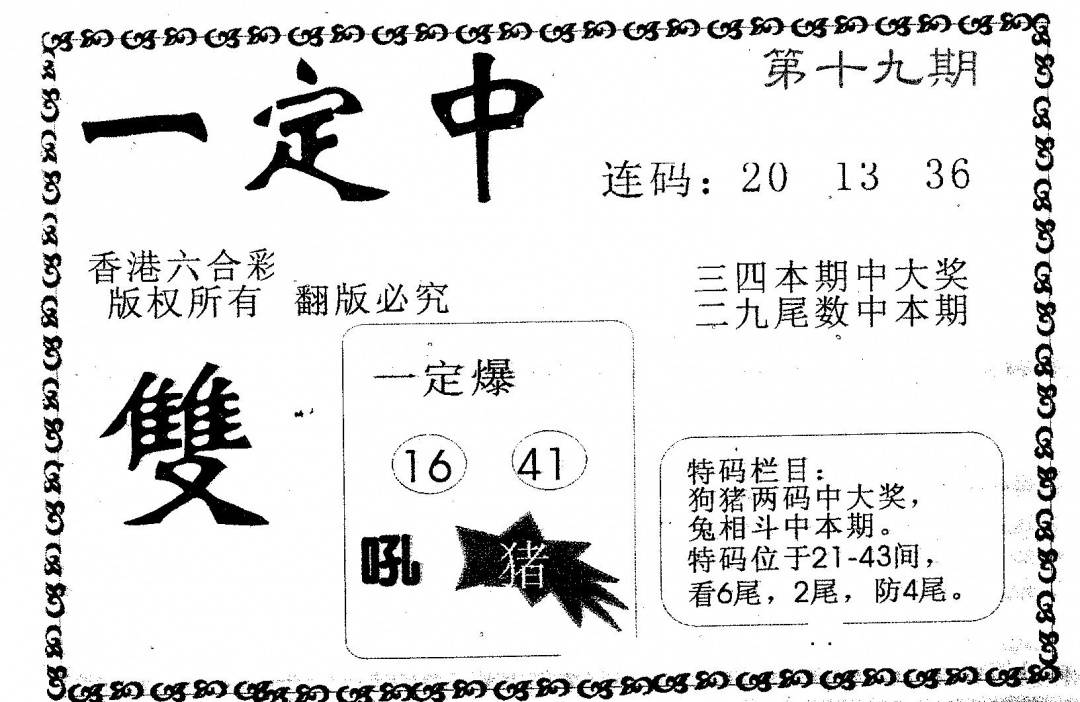 第十九期
一定中
连码：20 13 36
香港六合彩
版权所有 翻版必究
三四本期中大奖
二九尾数中本期
雙
一定爆
16 41
吼 猪
特码栏目：
狗猪两码中大奖，
兔相斗中本期。
特码位于21-43间，
看6尾，2尾，防4尾。